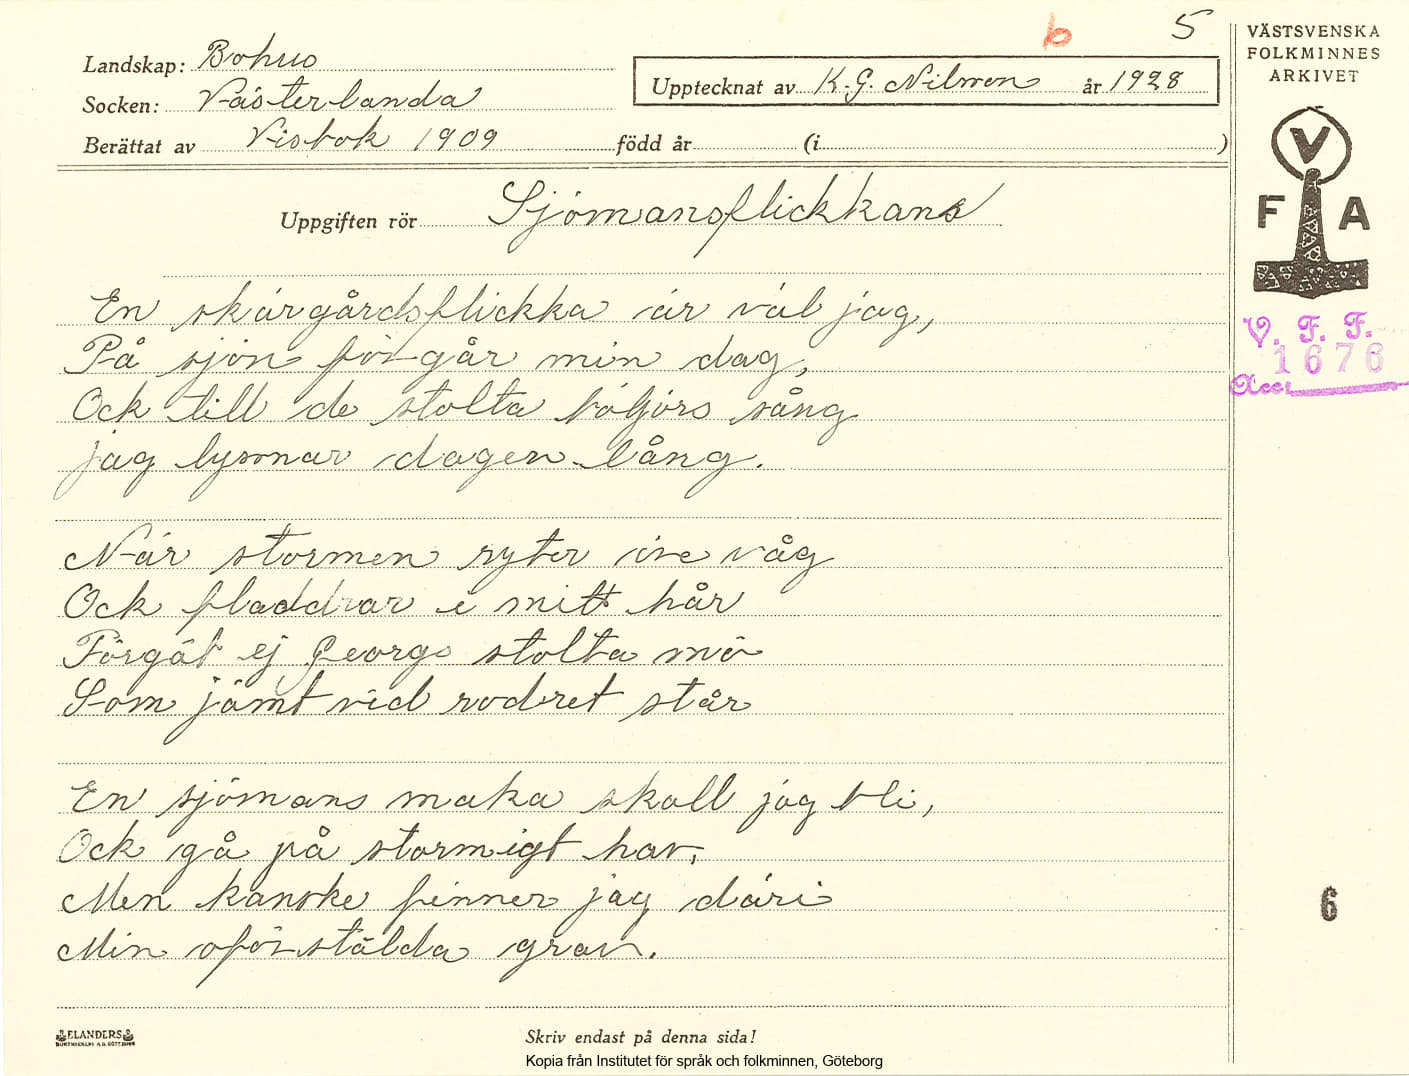 b 5
Landskap: Bohus
Socken: Västerlanda
Berättat av Visbok 1909 född år (i )
Upptecknat av K.G. Nilson år 1928
Uppgiften rör Sjömansflickkans
En skärgårdsflickka är väl jag,
På sjön förgår min dag,
Ock till de stolta böljors sång
jag lyssnar dagen lång.
När stormen ryter öve våg
Ock fladdrar i mitt hår
Förgät ej Georgs stolta mö
Som jämt vid rodret står
En sjömans maka skall jag bli,
Ock gå på stormigt hav,
Men kanske finner jag däri
Min oförstälda grav.
ELANDERS
Skriv endast på denna sida!
Kopia från Institutet för språk och folkminnen, Göteborg
VÄSTSVENSKA
FOLKMINNES
ARKIVET
V
F A
V. F. F.
1676
Acc.
6